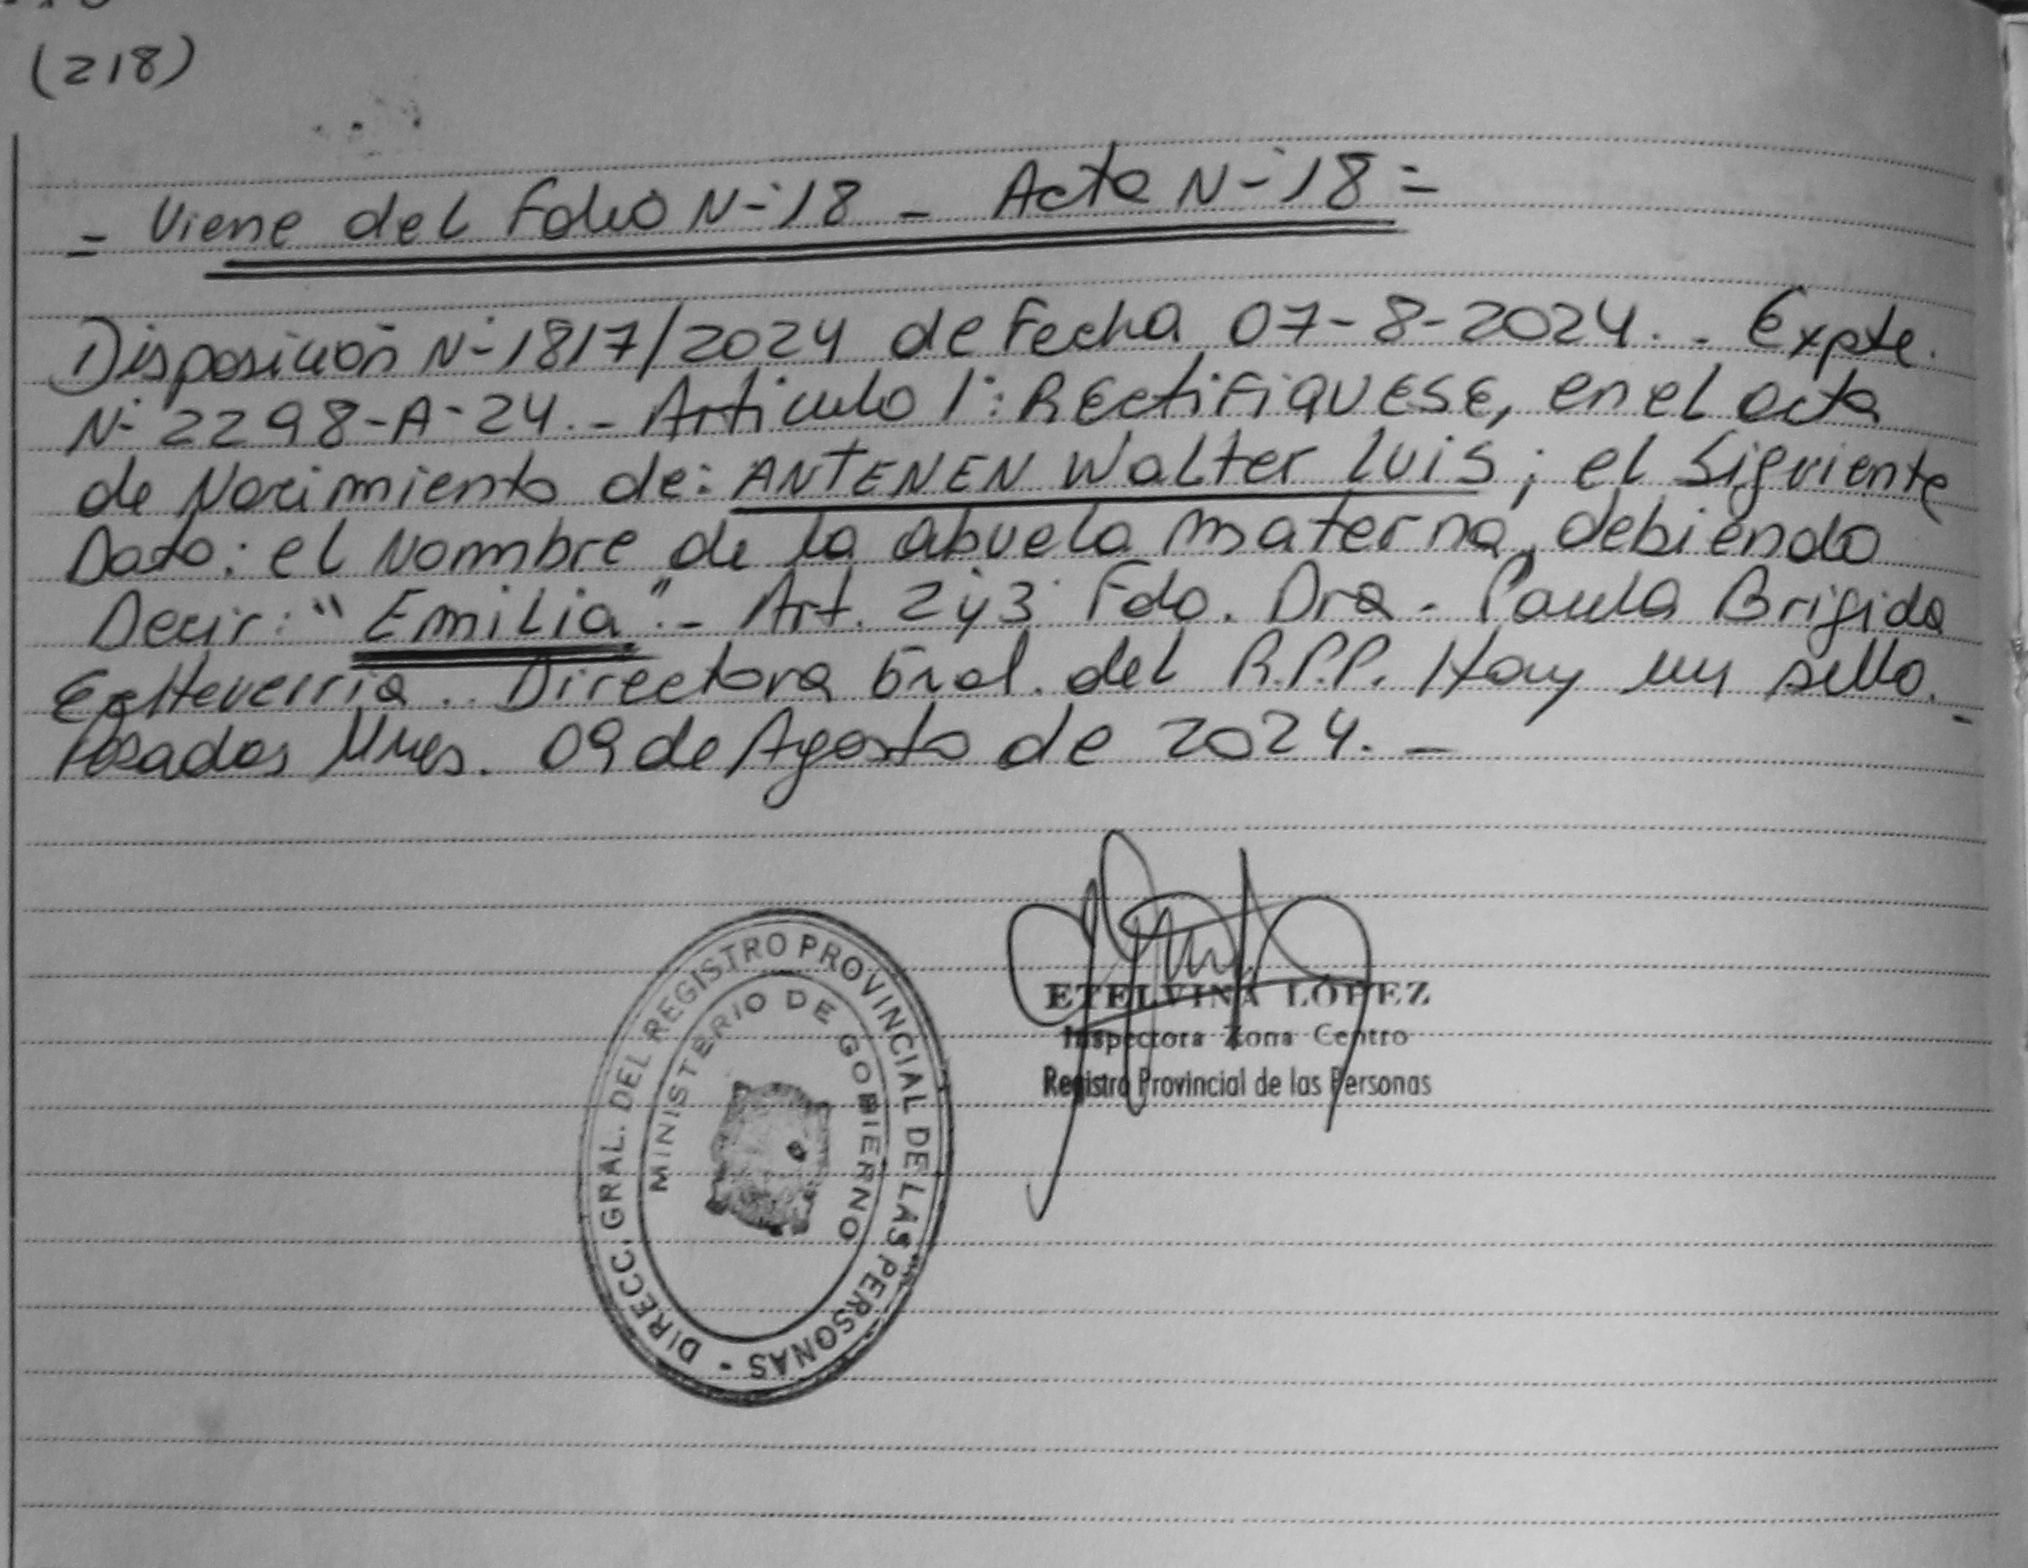 (218)
= Viene del Folio N-18 - Acta N-18 =
Disposición N-1817/2024 de Fecha 07-8-2024.- Expte.
N- 2298-A-24.- Articulo 1: RECtiFiQUESE, en el acta
de Nacimiento de: ANTENEN Walter Luis; el Siguiente
Dato: el Nombre de la abuela materna, debiendo
Decir: "Emilia".- Art. 2 y 3 Fdo. Dra. Paula Brigida
Echeverria.. Directora Gral. del R.P.P. Hay un sello.-
Posadas Mnes. 09 de Agosto de 2024.-
DIRECC. GRAL. DEL REGISTRO PROVINCIAL DE LAS PERSONAS -
MINISTERIO DE GOBIERNO
ETELVINA LOPEZ
Inspectora Zona Centro
Registro Provincial de las Personas